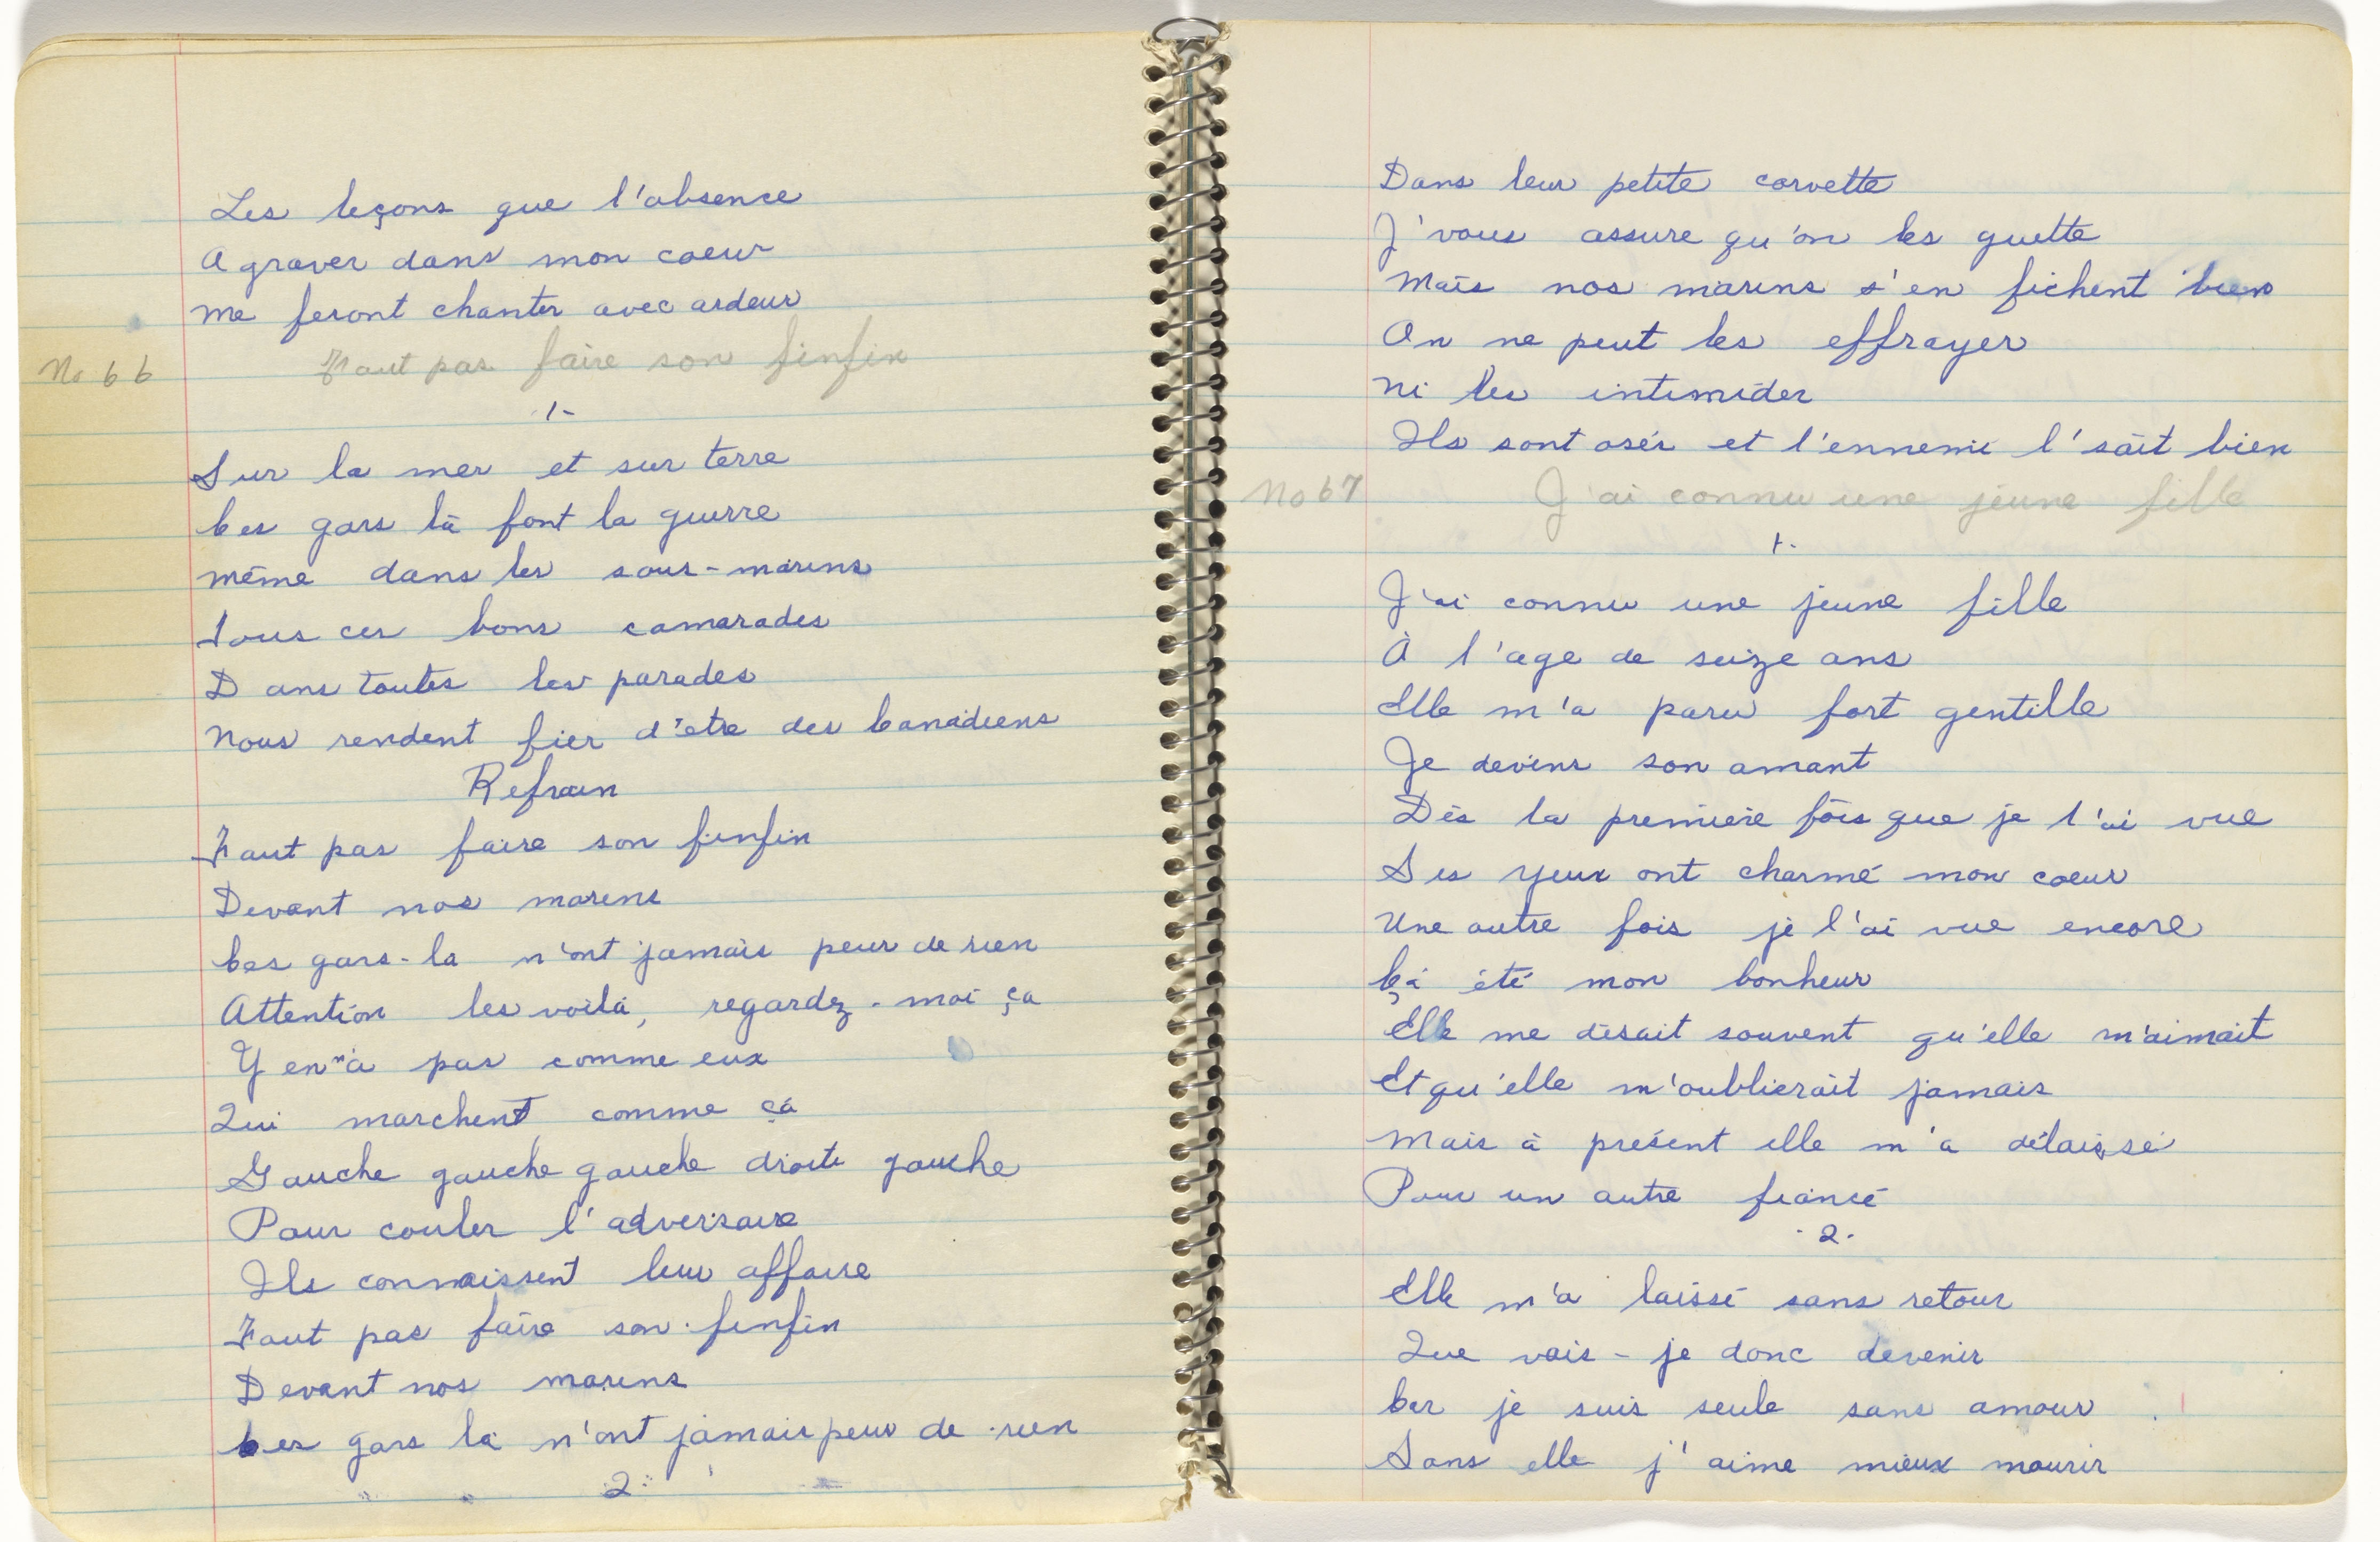 Les leçons que l'absence
A graver dans mon coeur
Me feront chanter avec ardeur
No 66 Faut pas faire son finfin
1-
Sur la mer et sur terre
Ces gars là font la guerre
même dans les sous-marins
Tous ces bons camarades
Dans toutes les parades
Nous rendent fier d'être des Canadiens
Refrain
Faut pas faire son finfin
Devant nos marins
Ces gars-la n'ont jamais peur de rien
Attention les voilà, regardez-moi ça
Y en "a pas comme eux
Qui marchent comme ça
Gauche gauche gauche droite gauche
Pour couler l'adversaire
Ils connaissent leur affaire
Faut pas faire son finfin
Devant nos marins
Ces gars là n'ont jamais peur de rien
2
Dans leur petite corvette
J'vous assure qu'on les guette
Mais nos marins s'en fichent bien
On ne peut les effrayer
Ni les intimider
Ils sont osés et l'ennemi l'sait bien
No 67 J'ai connu une jeune fille
1-
J'ai connu une jeune fille
À l'age de seize ans
Elle m'a paru fort gentille
Je devins son amant
Dès la première fois que je l'ai vue
Ses yeux ont charmé mon coeur
Une autre fois je l'ai vue encore
Çà été mon bonheur
Elle me disait souvent qu'elle m'aimait
Et qu'elle m'oublierait jamais
Mais à présent elle m'a délaissé
Pour un autre fiancé
2-
Elle m'a laissé sans retour
Que vais-je donc devenir
Car je suis seule sans amour
Sans elle j'aime mieux mourir